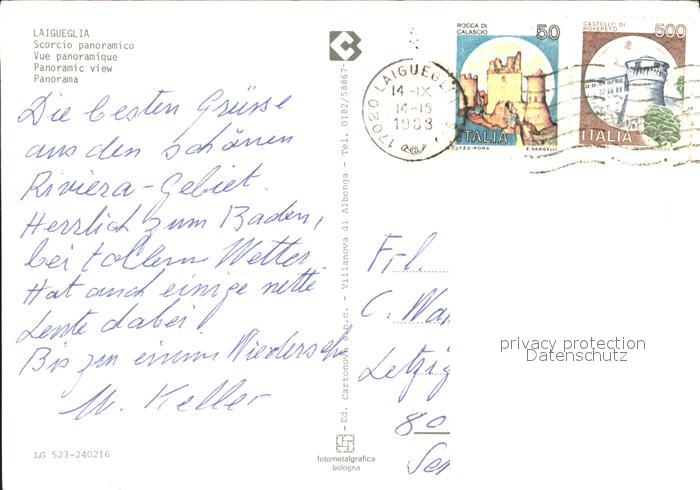 LAIGUEGLIA
Scorcio panoramico
Vue panoramique
Panoramic view
Panorama
Die besten Grüsse
aus den schönen
Riviera-Gebiet.
Herrlich zum Baden,
bei tollem Wetter
Hat auch einige nette
Leute dabei
Bis zu einem Wiederseh
M. Keller
LG 523-240216
Ed. Cartonova s.n.c. - Villanova di Albenga - Tel. 0182/58867
fotometalgrafica
bologna
ROCCA DI
CALASCIO
50
ITALIA
I.P.Z.S.-ROMA E.VANGELLI
CASTELLO DI
ROVERETO
500
ITALIA
17020 LAIGUEGL
14-IX
14-15
1983
Frl.
C. Wa
Letzig
80
privacy protection
Datenschutz